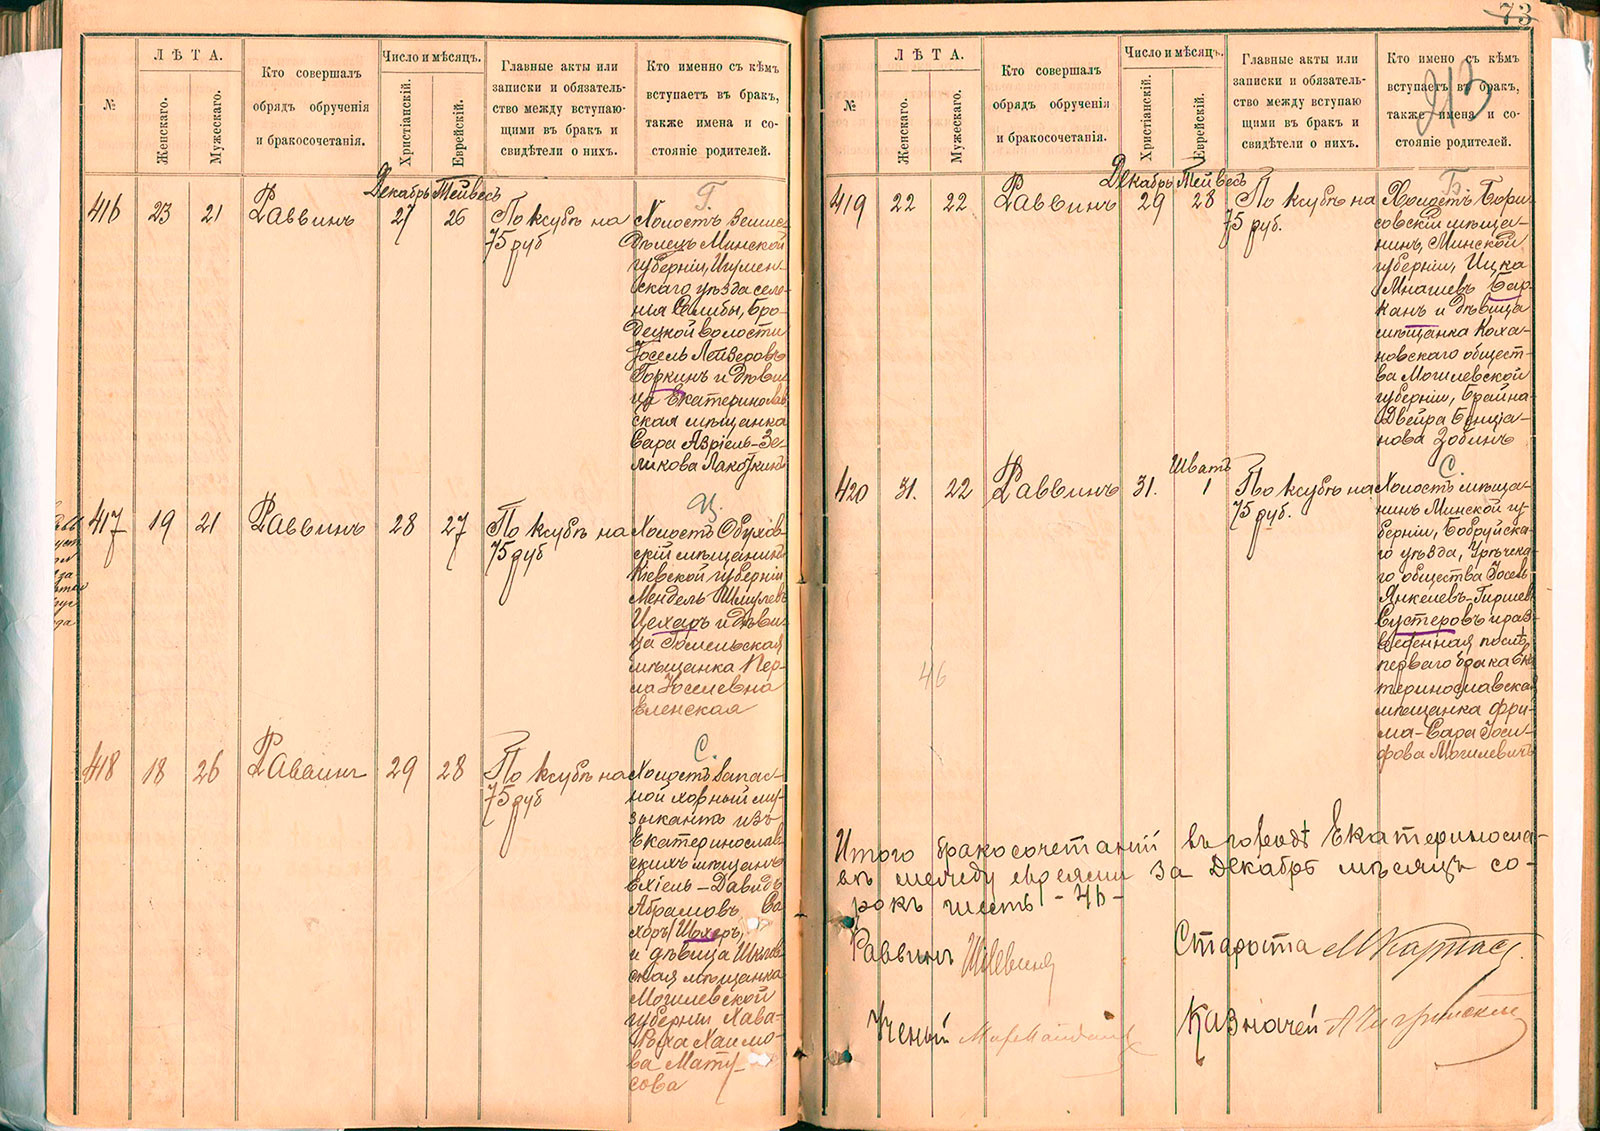 73
213
ЛѢТА.
№
Женскаго.
Мужескаго.
Кто совершалъ
обрядъ обрученія
и бракосочетанія.
Число и мѣсяцъ.
Христіанскій.
Еврейскій.
Главные акты или
записки и обязатель-
ство между вступаю-
щими въ бракъ и
свидѣтели о нихъ.
Кто именно съ кѣмъ
вступаетъ въ бракъ,
также имена и со-
стояніе родителей.
Декабрь Тейвесъ
416 23 21 Раввинъ 27 26 По ксубѣ на
75 руб
Г.
Холостъ Земле-
дѣлецъ Минской
губерніи, Игумен-
скаго уѣзда селе-
нія Селибы, Бро-
децкой волости
Іосель Лейзеровъ
Горкинъ и дѣви-
ца Екатеринослав
ская мѣщанка
Сара Азріель-Зе-
ликова Лакоткинъ
417 19 21 Раввинъ 28 27 По ксубѣ на
75 руб
Ц.
Холостъ Обухов-
скій мѣщанинъ
Кіевской губерніи
Мендель Шмулевъ
Цехаръ и дѣви-
ца Гомельская
мѣщанка Пер-
ла Іоселевна
вленская
418 18 26 Раввинъ 29 28 По ксубѣ на
75 руб
С.
Холостъ Запас-
ной хорный му-
зыкантъ изъ
Екатеринослав
скихъ мѣщанъ
Ехіель-Давидъ
Абрамовъ Са
хоръ/Шохоръ/
и дѣвица Шклов-
ская мѣщанка
Могилевской
губерніи Хава-
Рыха Хаимо-
ва Мату-
сова
ЛѢТА.
№
Женскаго.
Мужескаго.
Кто совершалъ
обрядъ обрученія
и бракосочетанія.
Число и мѣсяцъ.
Христіанскій.
Еврейскій.
Главные акты или
записки и обязатель-
ство между вступаю
щими въ бракъ и
свидѣтели о нихъ.
Кто имено съ кѣмъ
вступаетъ въ бракъ,
также имена и со-
стояніе родителей.
Декабрь Тейвесъ
419 22 22 Раввинъ 29 28 По ксубѣ на
75 руб.
Б.
Холостъ Бори-
совскій мѣща-
нинъ, Минской
губерніи, Ицка
Мнашевъ Бар-
канъ и дѣвица
мѣщанка Коха-
новскаго общест-
ва Могилевской
губерніи, Брайна
Двейра Бенціа-
нова Зобинъ
Шватъ
420 31. 22 Раввинъ 31. 1 По ксубѣ на
75 руб.
С.
Холостъ мѣща-
нинъ Минской гу-
берніи, Бобруйска-
го уѣзда, Урѣчска-
го общества Іосель
Янкелевъ-Гиршев
Сустеровъ и раз-
веденная послѣ
перваго брака Ека
теринославская
мѣщанка Фри-
ма-Сара Іоси-
фова Могилевичъ
46
Итого бракосочетаній въ городѣ Екатериносла-
вѣ между евреями за Декабрь мѣсяцъ со-
рокъ шесть -46-
Раввинъ ШЛевинъ Староста МКарпас
Ученый Казначей